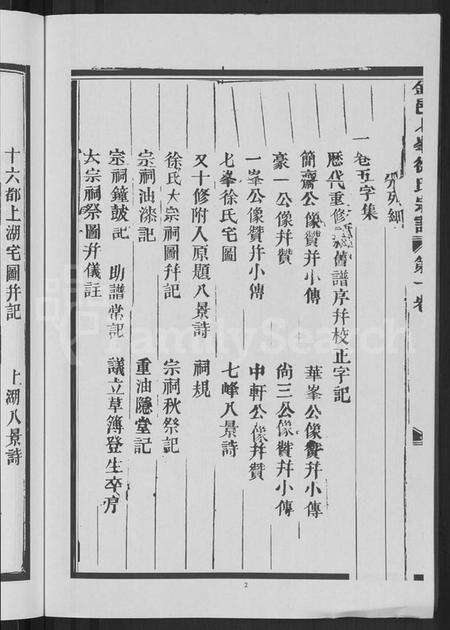 金邑七峯徐氏宗譜 第一卷
一卷五字集
歷代重修舊譜序幷校正字記
簡齋公像贊幷小傳 華峯公像贊幷小傳
豪一公像幷贊 尙三公像贊幷小傳
一峯公像贊幷小傳 中軒公像幷贊
七峯徐氏宅圖 七峰八景詩
又十修附入原題八景詩 祠規
徐氏大宗祠圖幷記 宗祠秋祭記
宗祠油漆記 重油隱堂記
宗祠鐘鼓記 助譜常記 議立草簿登生卒序
大宗祠祭圖幷儀註
十六都上湖宅圖幷記 上湖八景詩
2
FamilySearch